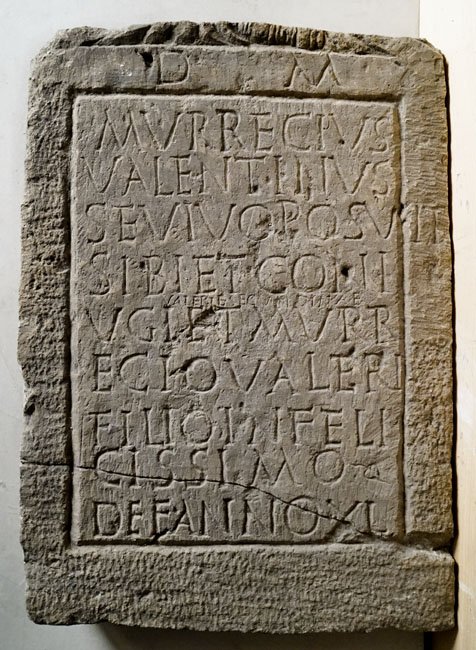 D M
MVRRECIVS
VALENTINVS
SEVIVOPOSVIT
SIBIETCONI
VGIETMVRR
ECIOVALERI
FILIOINFELI
CISSIMO
DEFANNOXL